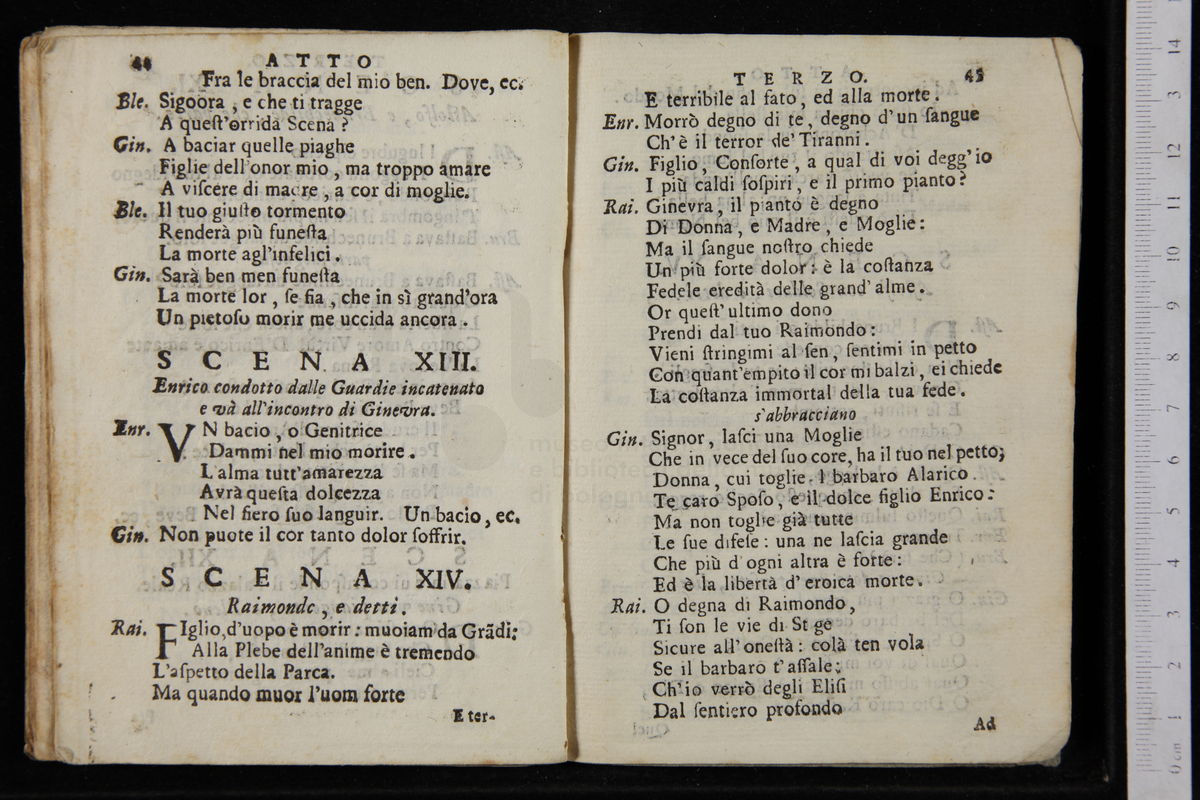 44 ATTO
Fra le braccia del mio ben. Dove, ec.
Ble. Sigoora , e che ti tragge
A queſt'orrida Scena ?
Gin. A baciar quelle piaghe
Figlie dell'onor mio , ma troppo amare
A viſcere di madre , a cor di moglie.
Ble. Il tuo giuſto tormento
Renderà più funeſta
La morte agl'infelici .
Gin. Sarà ben men funeſta
La morte lor , ſe fia , che in sì grand'ora
Un pietoſo morir me uccida ancora .
SCENA XIII.
Enrico condotto dalle Guardie incatenato
e và all'incontro di Ginevra.
Enr. VN bacio , o Genitrice
Dammi nel mio morire .
L'alma tutt'amarezza
Avrà queſta dolcezza
Nel fiero ſuo languir. Un bacio, ec.
Gin. Non puote il cor tanto dolor ſoffrir.
SCENA XIV.
Raimondo , e detti .
Rai. FIglio,d'uopo è morir : muoiam da Grãdi;
Alla Plebe dell'anime è tremendo
L'aſpetto della Parca.
Ma quando muor l'uom forte
E ter-
TERZO. 45
E terribile al fato, ed alla morte .
Enr. Morrò degno di te, degno d'un ſangue
Ch'è il terror de' Tiranni .
Gin. Figlio , Conſorte , a qual di voi degg'io
I più caldi ſoſpiri , e il primo pianto?
Rai. Ginevra, il pianto è degno
Di Donna , e Madre , e Moglie :
Ma il ſangue noſtro chiede
Un più forte dolor : è la coſtanza
Fedele eredità delle grand' alme .
Or queſt' ultimo dono
Prendi dal tuo Raimondo :
Vieni ſtringimi al ſen , ſentimi in petto
Con quant'empito il cor mi balzi , ei chiede
La coſtanza immortal della tua fede .
s'abbracciano
Gin. Signor, laſci una Moglie
Che in vece del ſuo core, ha il tuo nel petto;
Donna, cui toglie il barbaro Alarico .
Te caro Spoſo, e il dolce figlio Enrico :
Ma non toglie già tutte
Le ſue difeſe : una ne laſcia grande
Che più d'ogni altra è forte :
Ed è la libertà d' eroica morte .
Rai. O degna di Raimondo,
Ti ſon le vie di St ge
Sicure all' oneſtà : colà ten vola
Se il barbaro t' aſſale ;
Ch' io verrò degli Eliſi
Dal ſentiero profondo
Ad